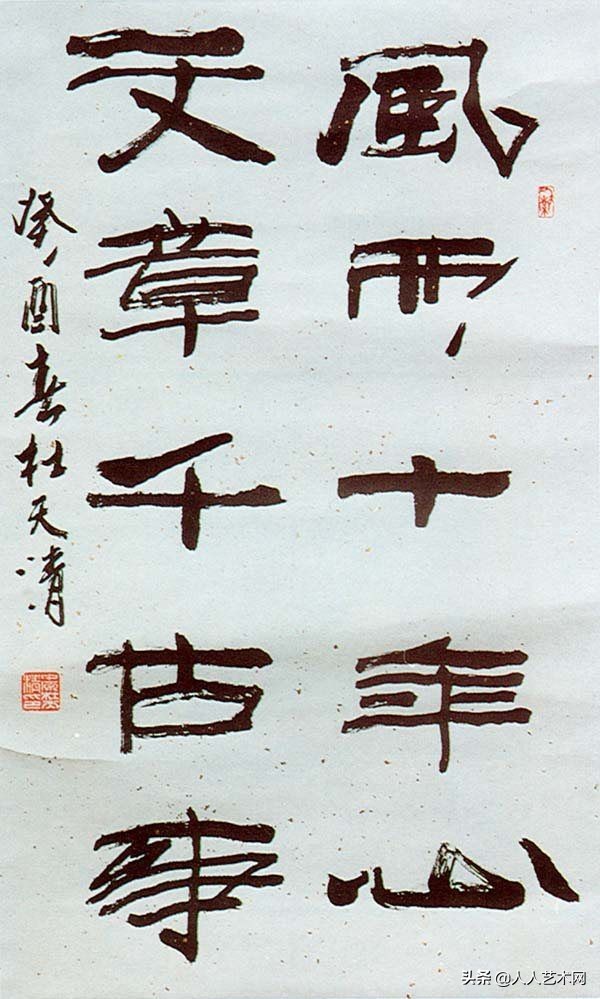 風雨十年心
文章千古事
癸酉春杜天清
头条 @人人艺术网